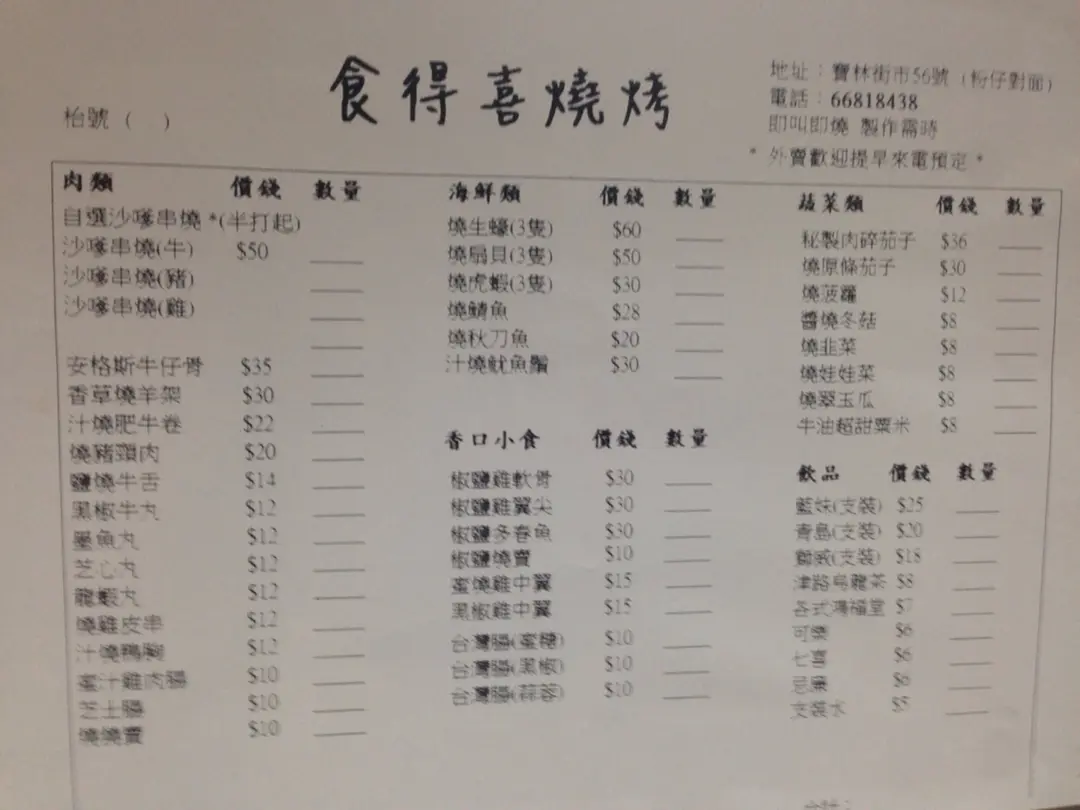 食得喜燒烤
枱號 (　)
地址：寶林街市56號 (粉仔對面)
電話：66818438
即叫即燒 製作需時
*外賣歡迎提早來電預定*
肉類 價錢 數量
自選沙嗲串燒 *(半打起)
沙嗲串燒(牛) $50
沙嗲串燒(豬)
沙嗲串燒(雞)
安格斯牛仔骨 $35
香草燒羊架 $30
汁燒肥牛卷 $22
燒豬頸肉 $20
鹽燒牛舌 $14
黑椒牛丸 $12
墨魚丸 $12
芝心丸 $12
龍蝦丸 $12
燒雞皮串 $12
汁燒鴨胸 $12
蜜汁雞肉腸 $10
芝士腸 $10
燒燒賣 $10
海鮮類 價錢 數量
燒生蠔(3隻) $60
燒扇貝(3隻) $50
燒虎蝦(3隻) $30
燒鯖魚 $28
燒秋刀魚 $20
汁燒魷魚鬚 $30
香口小食 價錢 數量
椒鹽雞軟骨 $30
椒鹽雞翼尖 $30
椒鹽多春魚 $30
椒鹽燒賣 $10
蜜燒雞中翼 $15
黑椒雞中翼 $15
台灣腸(蜜糖) $10
台灣腸(黑椒) $10
台灣腸(蒜蓉) $10
蔬菜類 價錢 數量
秘製肉碎茄子 $36
燒原條茄子 $30
燒菠蘿 $12
醬燒冬菇 $8
燒韭菜 $8
燒娃娃菜 $8
燒翠玉瓜 $8
牛油超甜粟米 $8
飲品 價錢 數量
藍妹(支裝) $25
青島(支裝) $20
獅威(支裝) $18
津路烏龍茶 $8
各式鴻福堂 $7
可樂 $6
七喜 $6
忌廉 $6
支裝水 $5